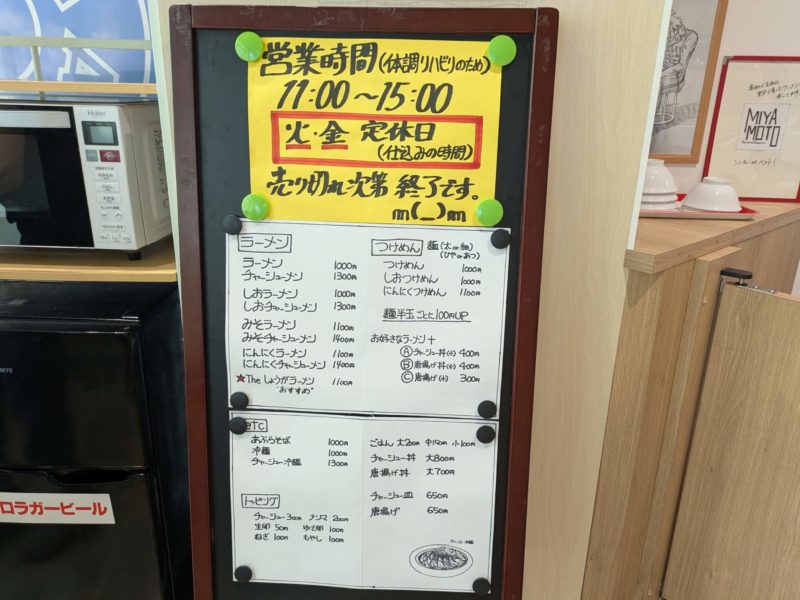 営業時間(体調リハビリのため)
11:00~15:00
火・金 定休日
(仕込みの時間)
売り切れ次第 終了です。
m(_)m
ラーメン
ラーメン 1000円
チャーシューメン 1300円
しおラーメン 1000円
しおチャーシューメン 1300円
みそラーメン 1100円
みそチャーシューメン 1400円
にんにくラーメン 1100円
にんにくチャーシューメン 1400円
★The しょうがラーメン 1100円
"おすすめ"
つけめん 麺(太or細)
(ひやorあつ)
つけめん 1000円
しおつけめん 1000円
にんにくつけめん 1100円
麺半玉ごとに100円UP
お好きなラーメン+
Ⓐチャーシュー丼(小) 400円
Ⓑ唐揚げ丼(小) 400円
Ⓒ唐揚げ(小) 300円
etc
あぶらそば 1000円
冷麺 1000円
チャーシュー冷麺 1300円
トッピング
チャーシュー 300円 メンマ 200円
生卵 50円 ゆで卵 100円
ねぎ 100円 もやし 100円
ごはん 大200円 中150円 小100円
チャーシュー丼 大800円
唐揚げ丼 大700円
チャーシュー皿 650円
唐揚げ 650円
Haier
MIYA
MOTO
ロラガービール